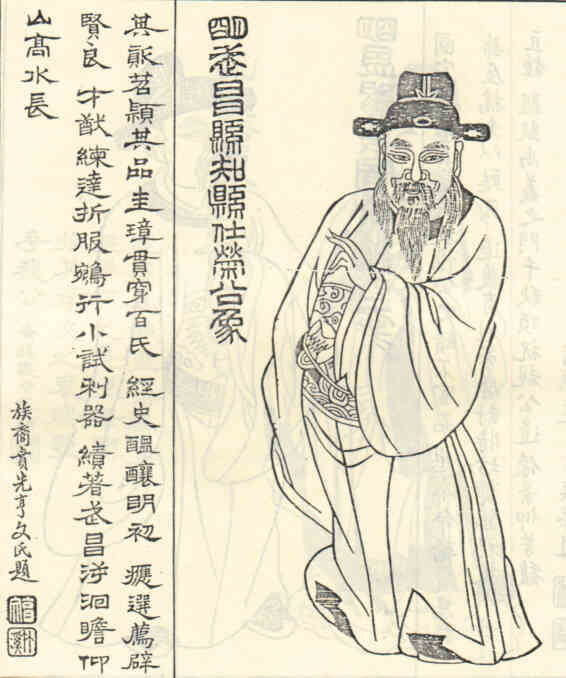 明武昌縣知縣仕榮公象
其茗穎其品圭璋貫穿百氏 經史醞釀明初 應選薦辟
賢良才猷練達折服鵷行小試利器 績著武昌溯洄瞻仰
山高水長
族裔賁先亨文氏題